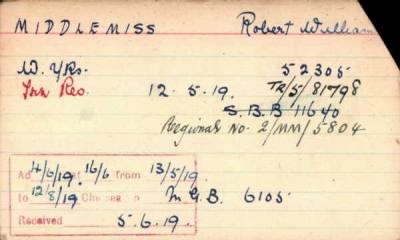 MIDDLEMISS Robert William
W. Yks. 52305
Trn Res. 12.5.19. TR/5/81798
S.B.B 11640
Regional No. 2/MM/5804
4/6/19. 16/6 from 13/5/19.
to 12/8/19 M.G.B. 6105
Received 5.6.19.